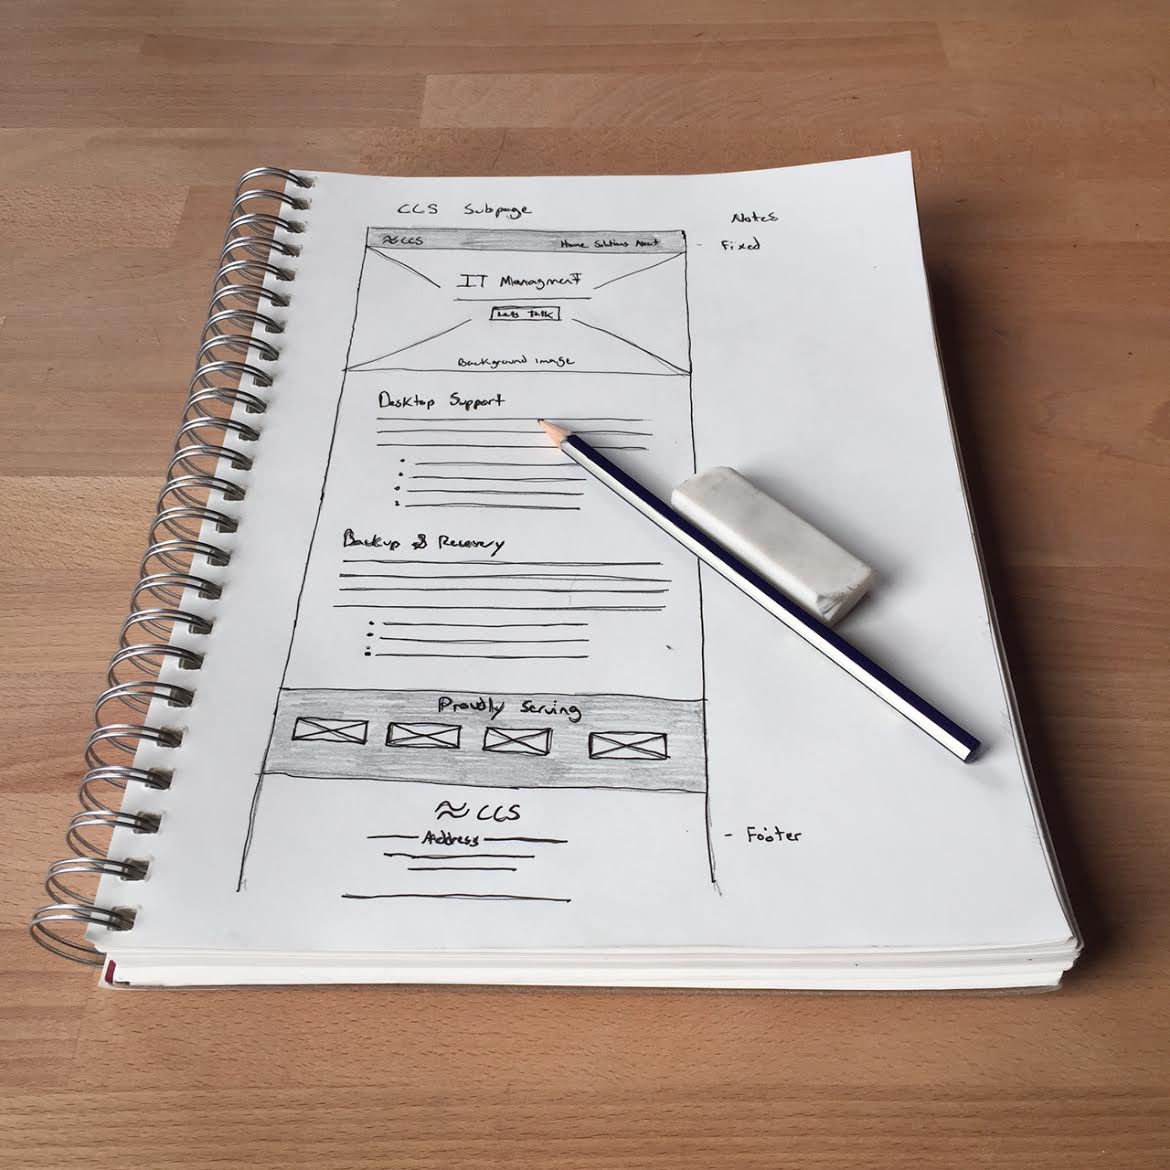 CCS Subpage
Notes
≈CCS Home Solutions About
- Fixed
IT Managment
Lets Talk
Background image
Desktop Support
Backup & Recovery
Proudly Serving
≈ CCS
Address
- Footer